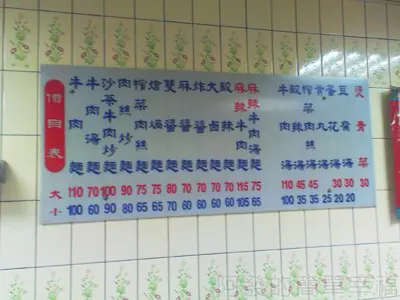 價目表
牛肉麵
牛肉湯麵
沙茶牛肉炒麵
肉絲炒麵
榨菜肉絲麵
麵
雙醬麵
麻醬麵
炸醬麵
大滷麵
酸辣麵
麻辣牛肉麵
麻辣牛肉湯麵
牛肉湯
酸辣湯
榨菜肉絲湯
丸湯
蛋花湯
豆腐湯
燙青菜
大 110 70 100 90 75 75 80 70 70 70 70 115 75 110 45 45 30 30 30
小 100 60 90 80 65 65 70 60 60 60 60 105 65 100 35 35 25 20 20